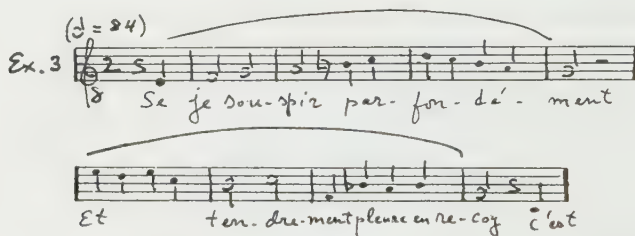 (♩ = 84)
Ex. 3
8
Se je sou-spir par-fon-dé-ment
Et ten-dre-ment pleure en re-coy c'est